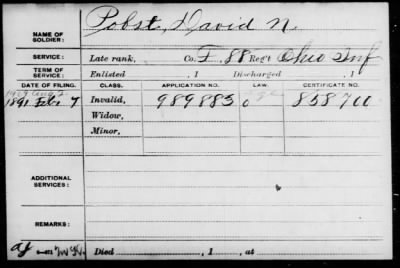 NAME OF SOLDIER: Pobst, David N
SERVICE: Late rank, Co. F, 88 Reg't Ohio Inf
TERM OF SERVICE: Enlisted , 1 Discharged , 1
DATE OF FILING. CLASS. APPLICATION NO. LAW. CERTIFICATE NO.
1891 Feb 7 Invalid, 989885 858700
Widow,
Minor,
ADDITIONAL SERVICES:
REMARKS:
Died , 1 , at